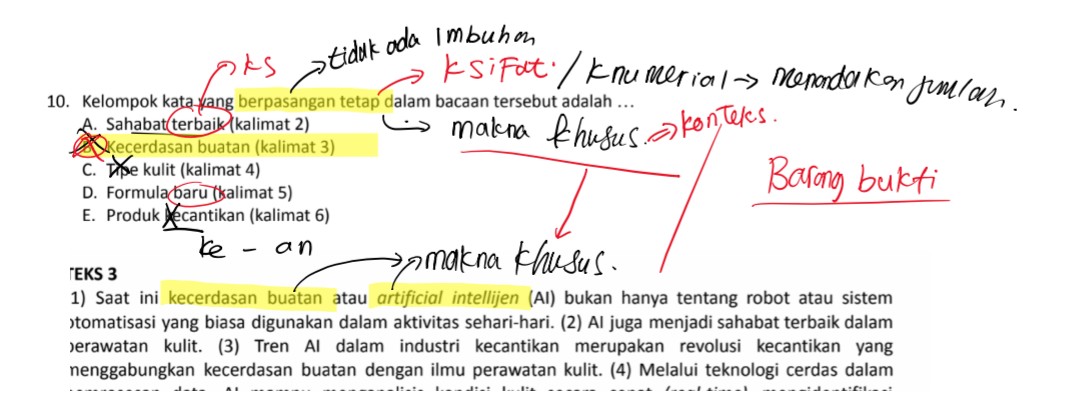 KS
tidak ada Imbuhan
KSifat. / Knumerial → menandakan jumlah.
10. Kelompok kata yang berpasangan tetap dalam bacaan tersebut adalah ...
A. Sahabat terbaik (kalimat 2)
makna khusus. ⇒ konteks.
B. Kecerdasan buatan (kalimat 3)
C. Tipe kulit (kalimat 4)
Barang bukti
D. Formula baru (kalimat 5)
E. Produk kecantikan (kalimat 6)
ke - an
makna khusus.
TEKS 3
1) Saat ini kecerdasan buatan atau artificial intellijen (AI) bukan hanya tentang robot atau sistem
otomatisasi yang biasa digunakan dalam aktivitas sehari-hari. (2) AI juga menjadi sahabat terbaik dalam
perawatan kulit. (3) Tren AI dalam industri kecantikan merupakan revolusi kecantikan yang
menggabungkan kecerdasan buatan dengan ilmu perawatan kulit. (4) Melalui teknologi cerdas dalam